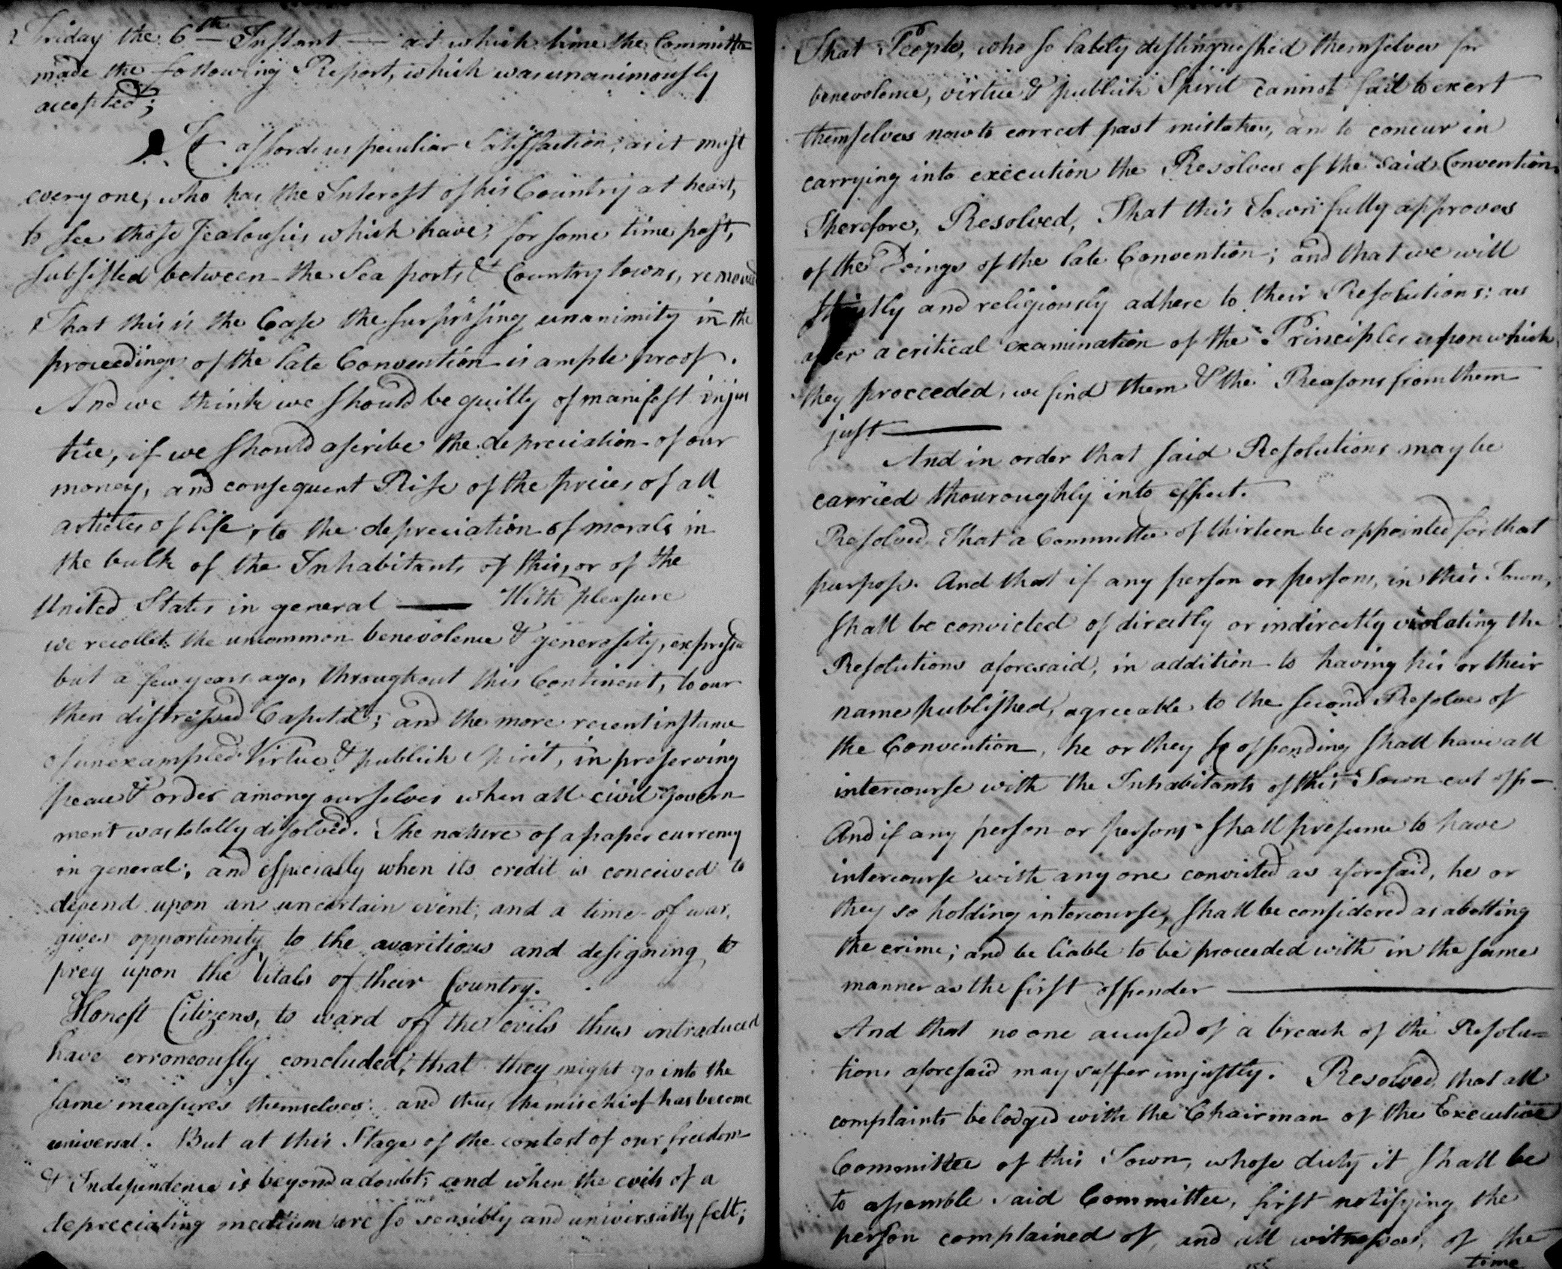 Friday the 6th Instant — at which time the Committee
made the following Report, which was unanimously
accepted;
It affords us peculiar Satisfaction, as it must
every one, who has the Interest of his Country at heart,
to see those Jealousies which have, for some time past,
subsisted between the Sea ports & Country towns, removed
That this is the Case the surprising unanimity in the
proceedings of the late Convention is ample proof.
And we think we should be guilty of manifest injus
tice, if we should ascribe the depreciation of our
money, and consequent Rise of the prices of all
articles of life, to the depreciation of morals in
the bulk of the Inhabitants of this, or of the
United States in general — With pleasure
we recollect the uncommon benevolence & generosity, expressed
but a few years ago, throughout this Continent, to our
then distressed Capital; and the more recent instance
of unexampled Virtue & publick Spirit, in preserving
peace & order among ourselves when all civil govern-
ment was totally dissolved. The nature of a paper currency
in general; and especially when its credit is conceived to
depend upon an uncertain event, and a time of war,
gives opportunity to the avaritious and designing to
prey upon the Vitals of their Country.
Honest Citizens, to ward off the evils thus intraduced
have erroneously concluded, that they might go into the
same measures themselves: and thus the mischief has become
universal. But at this Stage of the contest of our freedom
& Independence is beyond a doubt; and when the evils of a
depreciating medium are so sensibly and universally felt;
That People, who so lately distinguished themselves for
benevolence, virtue & publick Spirit cannot fail to exert
themselves now to correct past mistakes, an to concur in
carrying into execution the Resolves of the said Convention
Therefore, Resolved, That this Town fully approves
of the Doings of the late Convention; and that we will
strictly and religiously adhere to their Resolutions: as
after a critical examination of the Principles upon which
they proceeded, we find them & the Reasons from them
just —
And in order that said Resolutions may be
carried thouroughly into effect.
Resolved That a Committee of thirteen be appointed for that
purpose. And that if any person or persons, in this Town,
shall be convicted of directly or indirectly violating the
Resolutions aforesaid, in addition to having his or their
name published, agreeable to the second Resolve of
the Convention, he or they so offending shall have all
intercourse with the Inhabitants of this Town cut off —
And if any person or persons shall presume to have
intercourse with any one convicted as aforesaid, he or
they so holding intercourse, shall be considered as abetting
the crime; and be liable to be proceeded with in the same
manner as the first offender —
And that no one accused of a breach of the Resolu=
tions aforesaid may suffer unjustly. Resolved that all
complaints be lodged with the Chairman of the Executive
Committee of this Town, whose duty it shall be
to assemble said Committee, first notifying the
person complained of, and all witnesses, of the
time